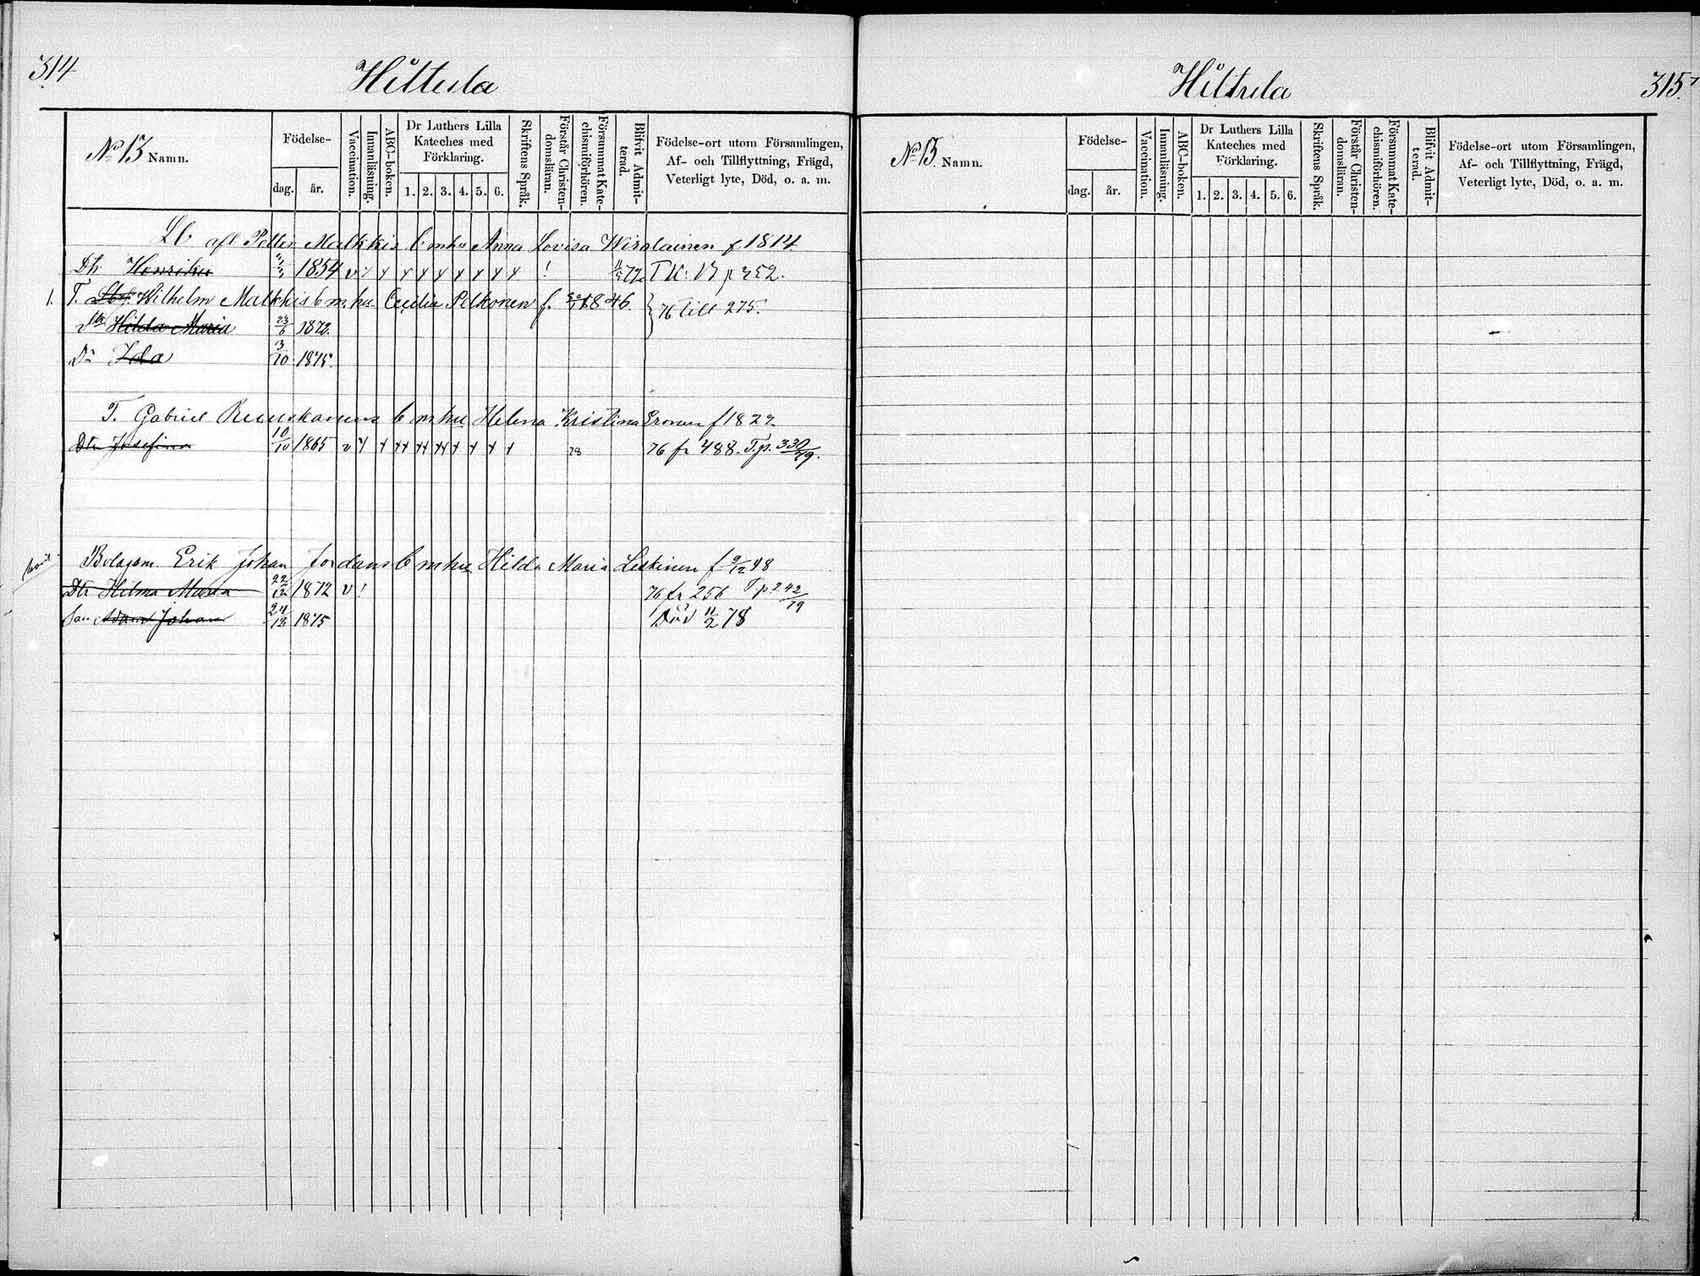 314
Hiltula
No 13 Namn.
Födelse-
dag. år.
Vaccination.
Innanläsning.
ABC-boken.
Dr Luthers Lilla Kateches med Förklaring.
1. 2. 3. 4. 5. 6.
Skriftens Språk.
Förstår Christendomsläran.
Försummat Katechismiförhören.
Blifvit Admitterad.
Födelse-ort utom Församlingen,
Af- och Tillflyttning, Frägd,
Veterligt lyte, Död, o. a. m.
Lb afl Petter Malkkis b m hu Anna Lovisa Wiralainen f 1814
Dtr Henrika 1854 v 72 T K: 13 p 352.
1. T. Wilhelm Malkkis b m hu Cecilia Pelkonen f. 1846.
Dtr Hilda Maria 23/6 1872. 76 till 275.
Dr Ida 3/10 1875.
T. Gabriel b m hu Helena Kristina Eronen f 1822
Dtr Josefina 10/10 1865 v 78 76 fr 488. T.p. 330/79.
Bolagsm. Erik Johan Jordans b m hu Hilda Maria Leskinen f 9/12 48
Dtr Hilma Maria 22/12 1872 v ! 76 fr 256 T p 242/79
Son Adam Johan 24/12 1875 Död 11/2 78
315.
Hiltula
No 13. Namn.
Födelse-
dag. år.
Vaccination.
Innanläsning.
ABC-boken.
Dr Luthers Lilla Kateches med Förklaring.
1. 2. 3. 4. 5. 6.
Skriftens Språk.
Förstår Christendomsläran.
Försummat Katechismiförhören.
Blifvit Admitterad.
Födelse-ort utom Församlingen,
Af- och Tillflyttning, Frägd,
Veterligt lyte, Död, o. a. m.